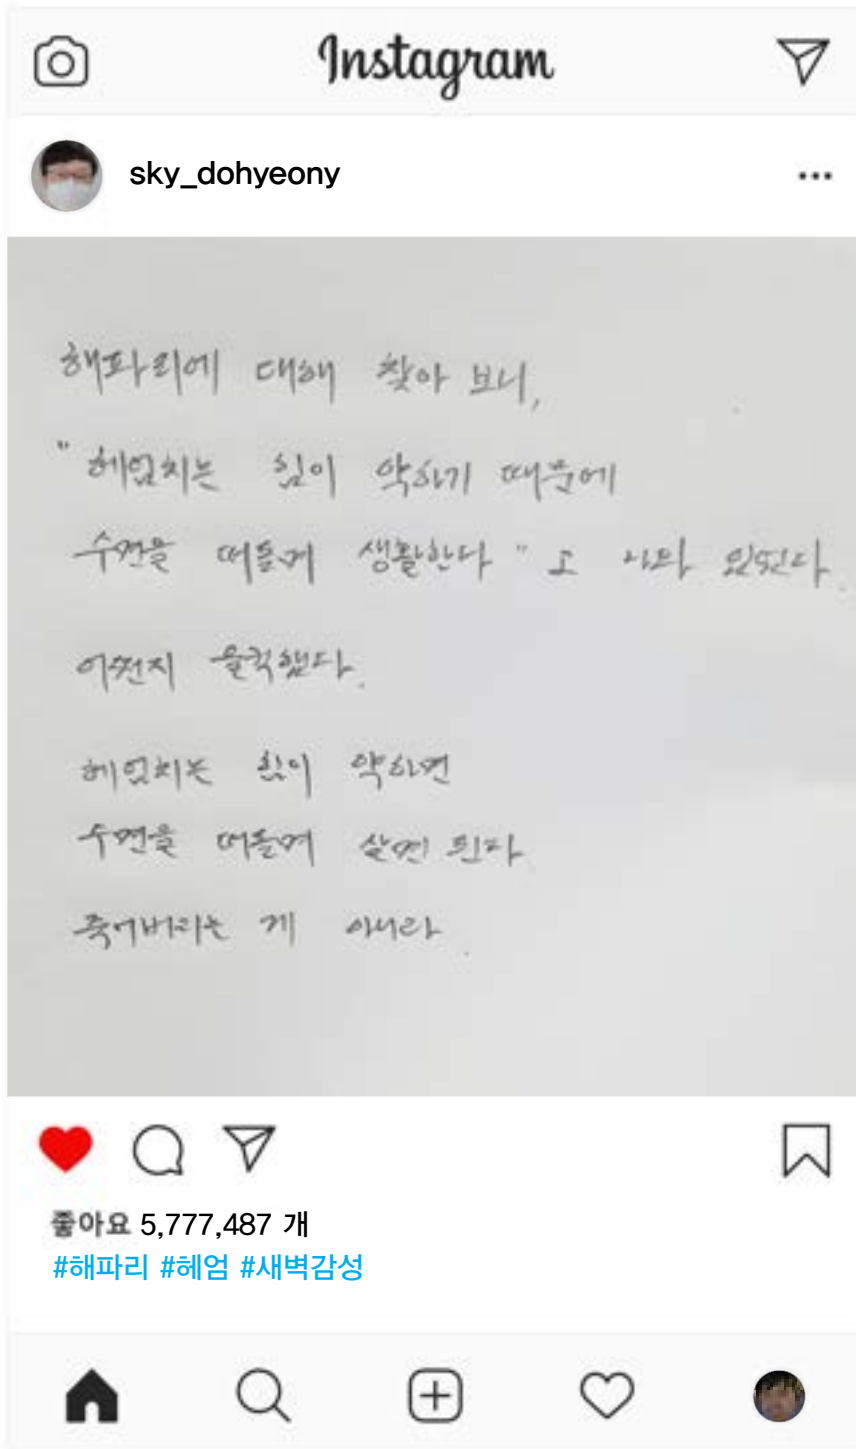 Instagram
sky_dohyeony
해파리에 대해 찾아 보니,
"헤엄치는 힘이 약하기 때문에
수면을 떠돌며 생활한다"고 나와 있었다.
어쩐지 울컥했다.
헤엄치는 힘이 약하면
수면을 떠돌며 살면 된다
죽어버리는 게 아니라.
좋아요 5,777,487 개
#해파리 #헤엄 #새벽감성